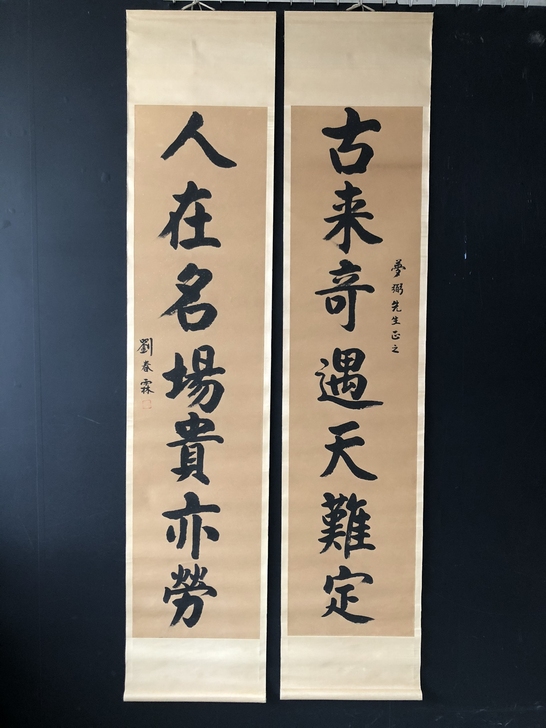 古来奇遇天難定
夢弼先生正之
人在名場貴亦勞
劉春霖